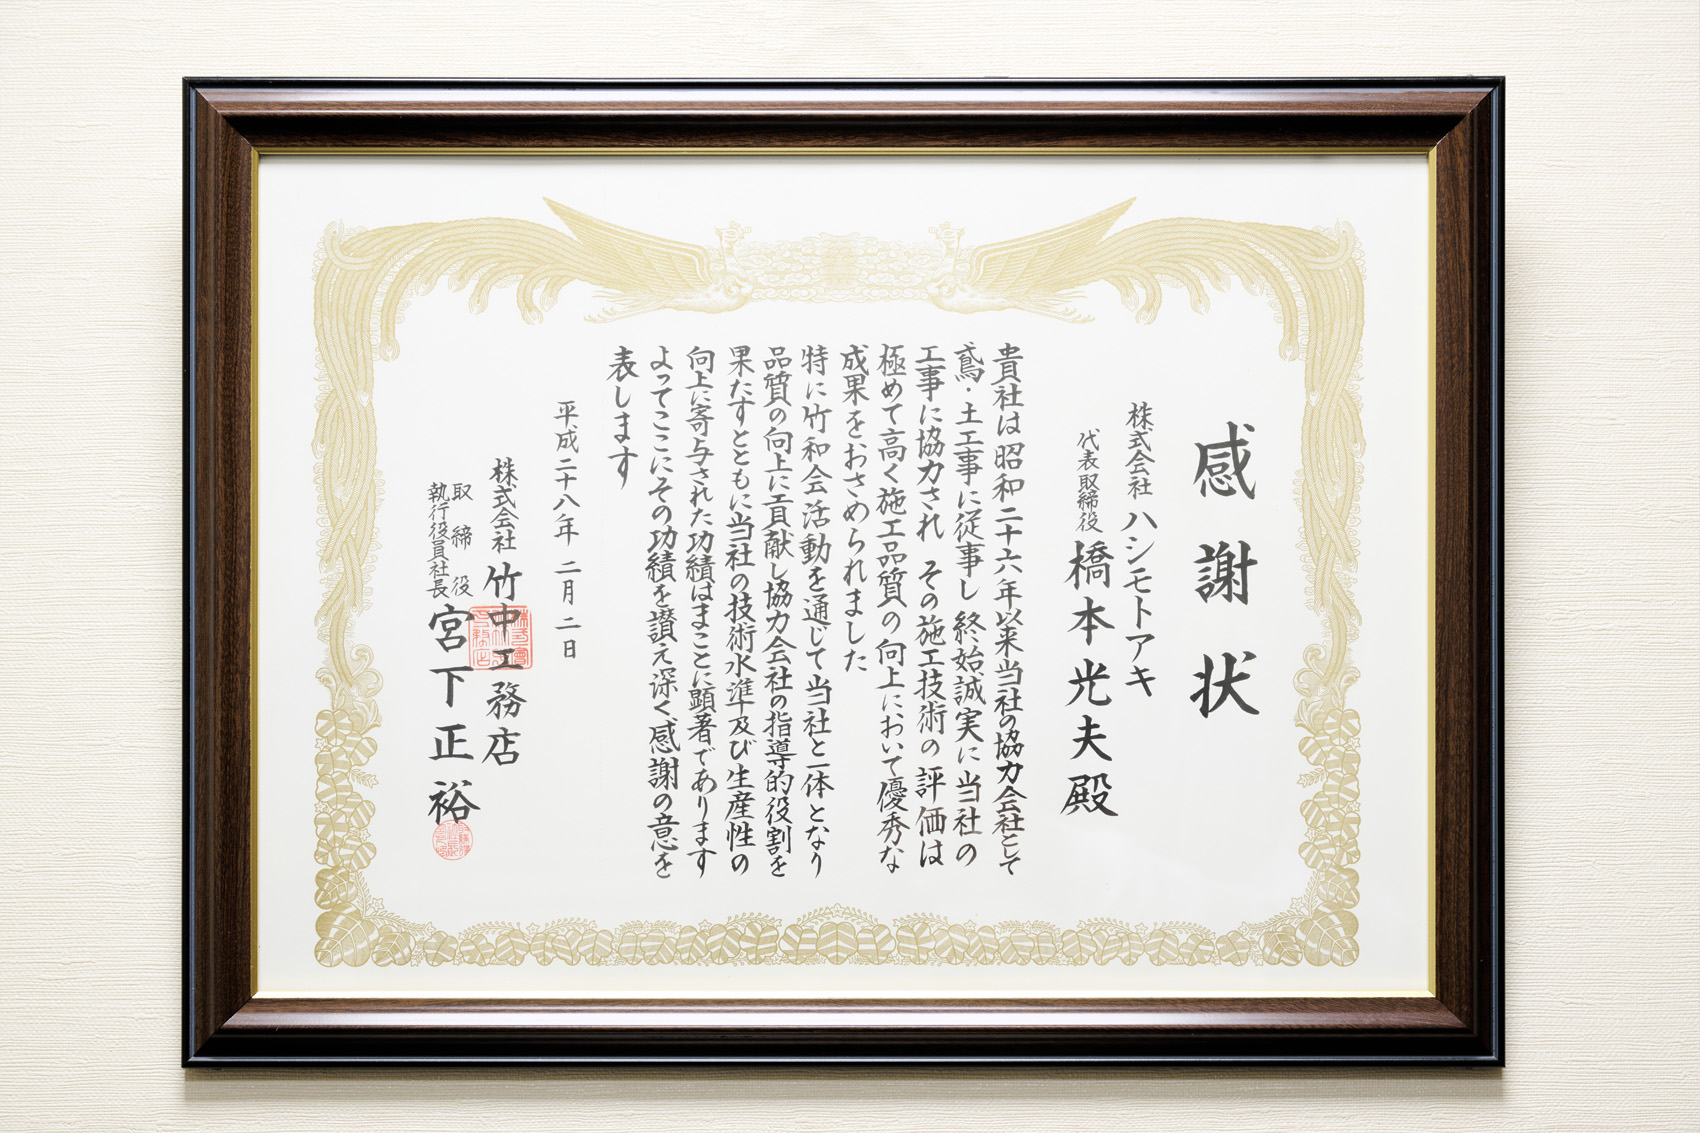 感謝状
株式会社 ハシモトアキ
代表取締役 橋本光夫殿
貴社は昭和二十六年以来当社の協力会社として
鳶・土工事に従事し 終始誠実に当社の
工事に協力され その施工技術の評価は
極めて高く施工品質の向上において優秀な
成果をおさめられました
特に竹和会活動を通じて当社と一体となり
品質の向上に貢献し協力会社の指導的役割を
果たすとともに当社の技術水準及び生産性の
向上に寄与された功績はまことに顕著であります
よってここにその功績を讃え深く感謝の意を
表します
平成二十八年 二月 二日
株式会社 竹中工務店
取締役
執行役員社長 宮下正裕